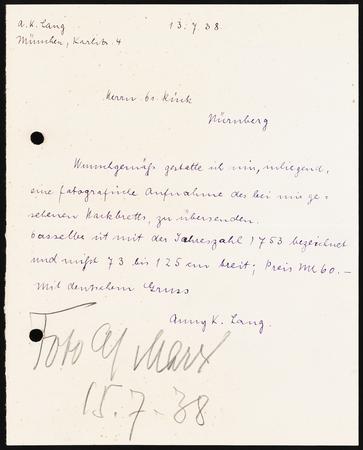 A. K. Lang 13.7.38.
München, Karlstr. 4
Herrn Gg. Kinck
Nürnberg
Wunschgemäß gestatte ich mir, inliegend,
eine fotografische Aufnahme des bei mir ge=
sehenen Hackbretts, zu übersenden.
Dasselbe ist mit der Jahreszahl 1753 bezeichnet
und mißt 73 bis 125 cm breit; Preis Mk 60.—
Mit deutschem Gruss
Anny K. Lang.
Foto an Marx
15.7.38